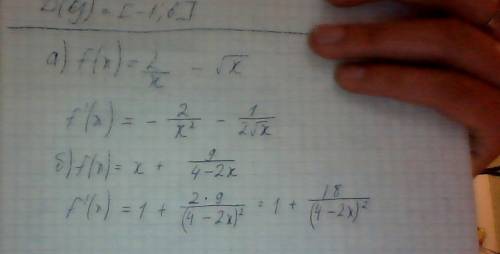 а) f(x) = 2/x - √x
f'(x) = - 2/x² - 1/(2√x)
б) f(x) = x + 9/(4-2x)
f'(x) = 1 + (2·9)/(4-2x)² = 1 + 18/(4-2x)²